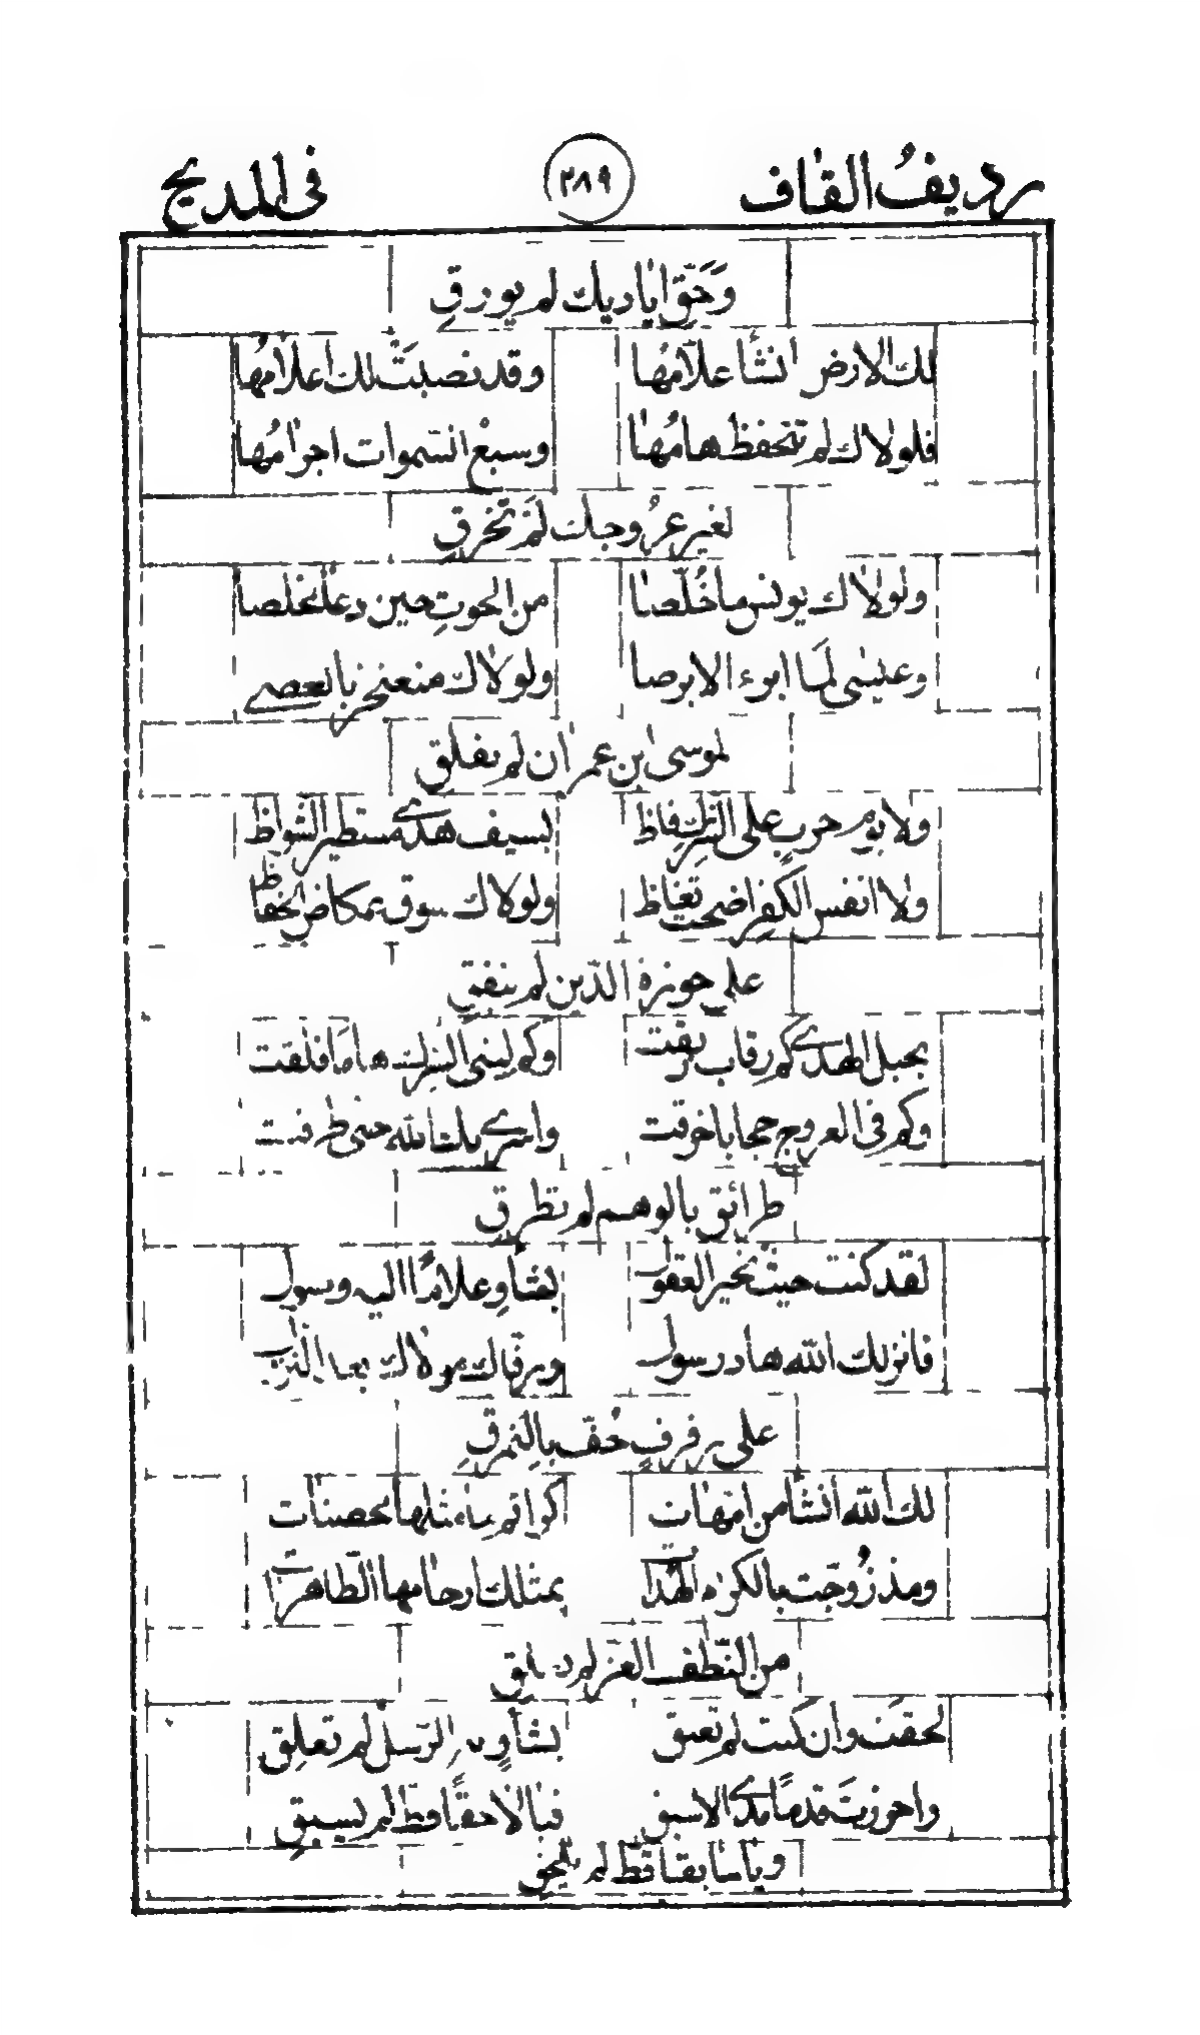 رديفُ القاف ٢٨٩ فى المديح
وَحَقِّ اياديك لم يورقِ
لك الارض انشأ علّامُها وقد نصبَتْ لك اعلامُها
فلولاك لم تتحفظ هامُها وسبعْ السّموات اجرامُها
لغير عُروجك لَمْ تخرقِ
ولولاك يونس ما خُلّصا من الحوتِ حين دعا مخلصا
وعيسى لَما ابرء الابرصا ولولاك مثعنجر بالعصى
لموسى ابن عمران لم يفلق
ولا يوم حربٍ على الشركِ فاظ بسيف هدى مستطير الشواظ
ولا انفس الكفر اضحت تغاظ ولولاك سوق عكاض الحفاظ
على حوزة الدّين لم ينفق
بحبل الهدى كم رقاب ربقت وكم لبنى الشرك هامًا فلقت
وكم فى العروج حجابا خرقت واسرى بك الله حتى طرقت
طرائق بالوهم لم تطرقِ
لقد كنت حيثُ تحير العقول بشأوٍ علامًا اليه وصول
فانزلك الله هاد رسول ورقّاك مولاك بعد النزول
على رفرفٍ حُفّ بالنمرقِ
لك الله انشأ من امّهات كرائم ما مثلها محصنات
ومذ زُوجّت بالكرام الهداة بمثلك ارحامها الطاهرات
من النّطف الغرّ لم تعلق
لحقتَ وان كنت لم تعنق بشأوٍ به الرّسل لم تعلقِ
واحرزتَ قدمًا مدى الاسبق فيا لاحقًا قطّ لم يسبق
ويا سابقا قطّ لم يلحقِ